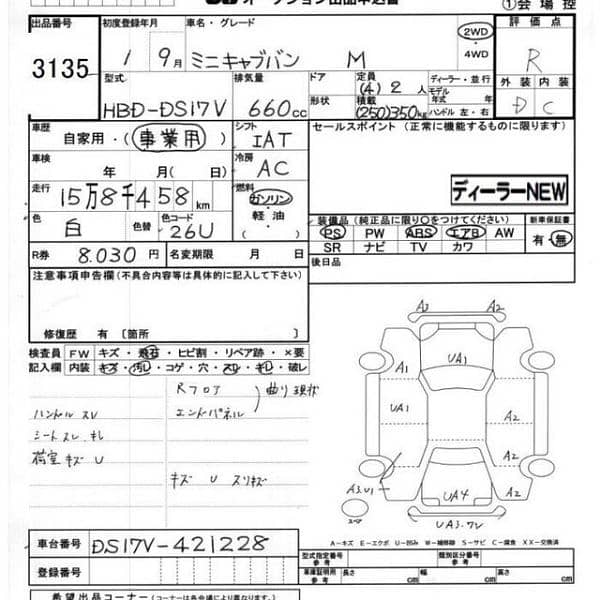 オークション出品申込書 ①会場控
出品番号 初度登録年月 車名・グレード 評価点
3135 1 9月 ミニキャブバン M 2WD・4WD R
型式 排気量 ドア 定員 (4) 2人 ディーラー・並行 外装 内装
HBD-DS17V 660cc 形状 積載 (250)350kg モデル年式 年 ハンドル 左・右 D C
車歴 自家用・(事業用) シフト IAT セールスポイント (正常に機能するものに限ります)
車検 年 月( ) 冷房 AC
走行 15万8千458km 燃料 ガソリン・軽油・( ) ディーラーNEW
色 白 色替 色コード 26U 装備品(純正品に限り○をつけてください) 新車保証書
PS PW ABS エアB AW 有・無
R券 8.030円 名変期限 月 日 SR ナビ TV カワ
注意事項申告欄(不具合内容等は具体的に記入して下さい) 後日品
修復歴 有〔箇所 〕
検査員 FW キズ・飛石・ヒビ割・リペア跡・×要
記入欄 内装 キズ・汚レ・コゲ・穴・スレ・キレ・破レ
Rフロア 曲り現状
ハンドルスレ エンドパネル
シートスレ キレ
荷室キズ U キズ U スリキズ
A3 A2
UA1
A1
UA1 A2
A2
A2
A3.U1 UA4
スペア UA3.
A-キズ E-エクボ U-凹み W-補修跡 S-サビ C-腐食 XX-交換済
車台番号 DS17V-421228 型式指定番号 参考 類別区分番号 参考
登録番号 車庫証明用 参考 長さ cm 幅 cm 高さ cm
希望出品コーナー(コーナーは各会場により異なります。)